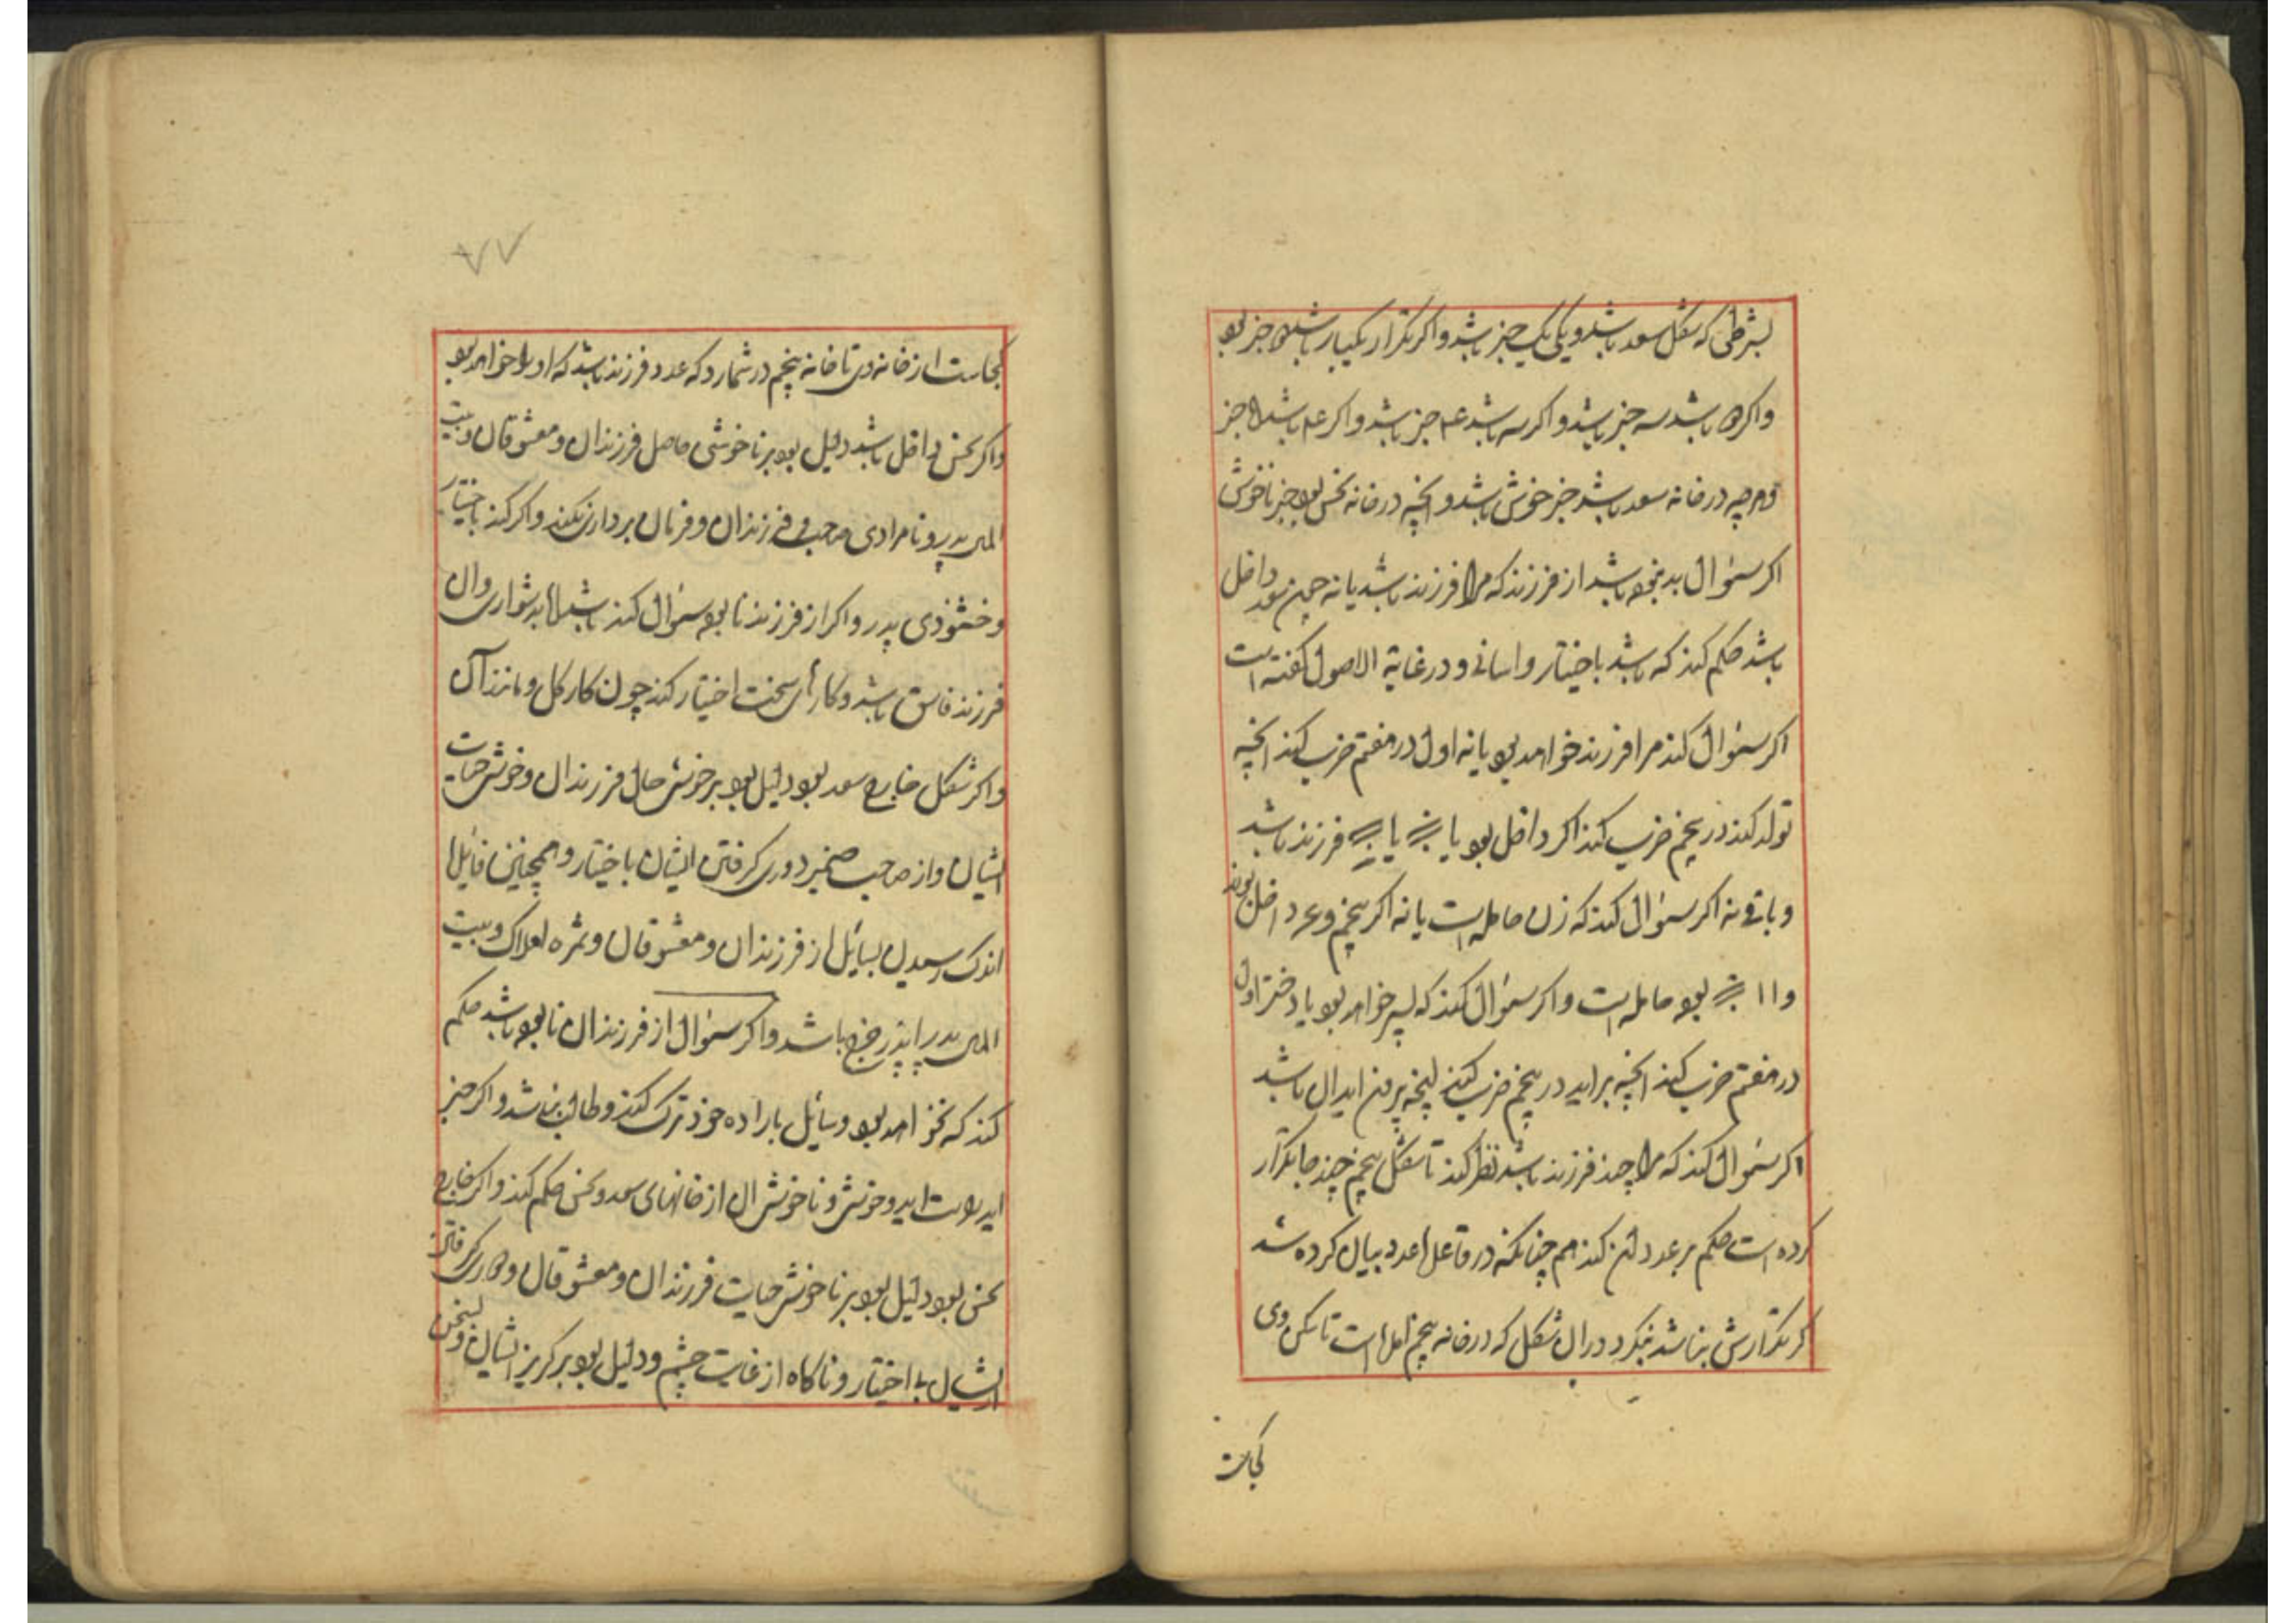 بشرطی که شکل سعد باشد و یکی یک چیز باشد و اکر تکرار یکبار باشد چیز بود
واکر باشد سه چیز باشد و اکر سه باشد ع‍ چیز باشد و اکر ع‍ باشد چیز
و هر چه در خانه سعد باشد خبر خوش باشد و انچه در خانه نحس بود خبر ناخوش
اکر سئوال بد بود باشد از فرزند که مرا فرزند باشد یا نه چون سعد داخل
باشد حکم کند که باشد باختیار و اسانی و در غایة الاصول کفته است
اکر سئوال کند مرا فرزند خواهد بود یا نه اول در هفتم ضرب کند انچه
تولد کند در پنجم ضرب کند اکر داخل بود یا یا فرزند باشد
و باقی نه اکر سئوال کند که زن حامله است یا نه اکر پنجم و داخل بوند
و ۱۱ بود حامله است و اکر سئوال کند که پسر خواهد بود یا دختر اول
در هفتم ضرب کند انچه براید در پنجم ضرب کند
اکر سئوال کند که مرا چند فرزند باشد نظر کند تا شکل پنجم چند جا تکرار
کرده است حکم بر عدد کند هم چنانکه در اعداد بیان کرده شد
کر تکرارش نباشد بنکرد در ان شکل که در خانه پنجم امده است تا سکن وی
کجاست
۷۷
کجاست از خانه وی تا خانه پنجم در شمارد که عدد فرزند باشد که او را خواهد بود
واکر نحس داخل باشد دلیل بود بر ناخوشی حاصل فرزندان و معشوقان و بیت
المال پدر و نامرادی صاحب فرزندان و فرمان برداری نکند و اکر کند باختیار
و خشنودی پدر و اکر از فرزند نابود سئوال کند باشد اما بدشواری وان
فرزند فاسق باشد و کارهای سخت اختیار کند چون کار کل و مانند آن
واکر شکل خارج سعد بود دلیل بود بر خوش حال فرزندان و خوش حیات
ایشان و از صاحب ضمیر دوری کرفتن ایشان باختیار و همچنین
اندک رسیدن بسایل از فرزندان و معشوقان و ثمره املاک و بیت
المال پدر خرج باشد و اکر سئوال از فرزندان نابود باشد حکم
کند که نخواهد بود و سائل باراده خود ترک کند و طالب نباشد و اکر خبر
اید اید و خوش و ناخوش ان از خانهای سعد و نحس حکم کند و اکر خارج
نحس بود دلیل بود بر ناخوش حیات فرزندان و معشوقان و دوری کرفتن
ایشان باختیار و ناکاه از غایت چشم و دلیل بود بر کریز ایشان